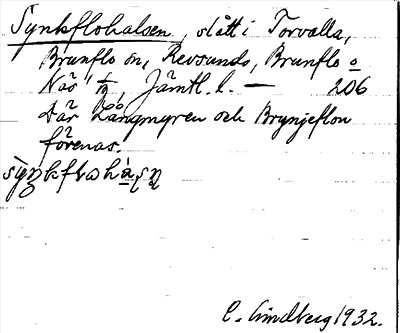 Synkflohalsen, slått i Torvalla,
Brunflo sn, Revsunds, Brunflo o
Näs tg, Jämtl. l. — 206
där Långmyren och Brynjeflon
förenas.
C. Lindberg 1932.